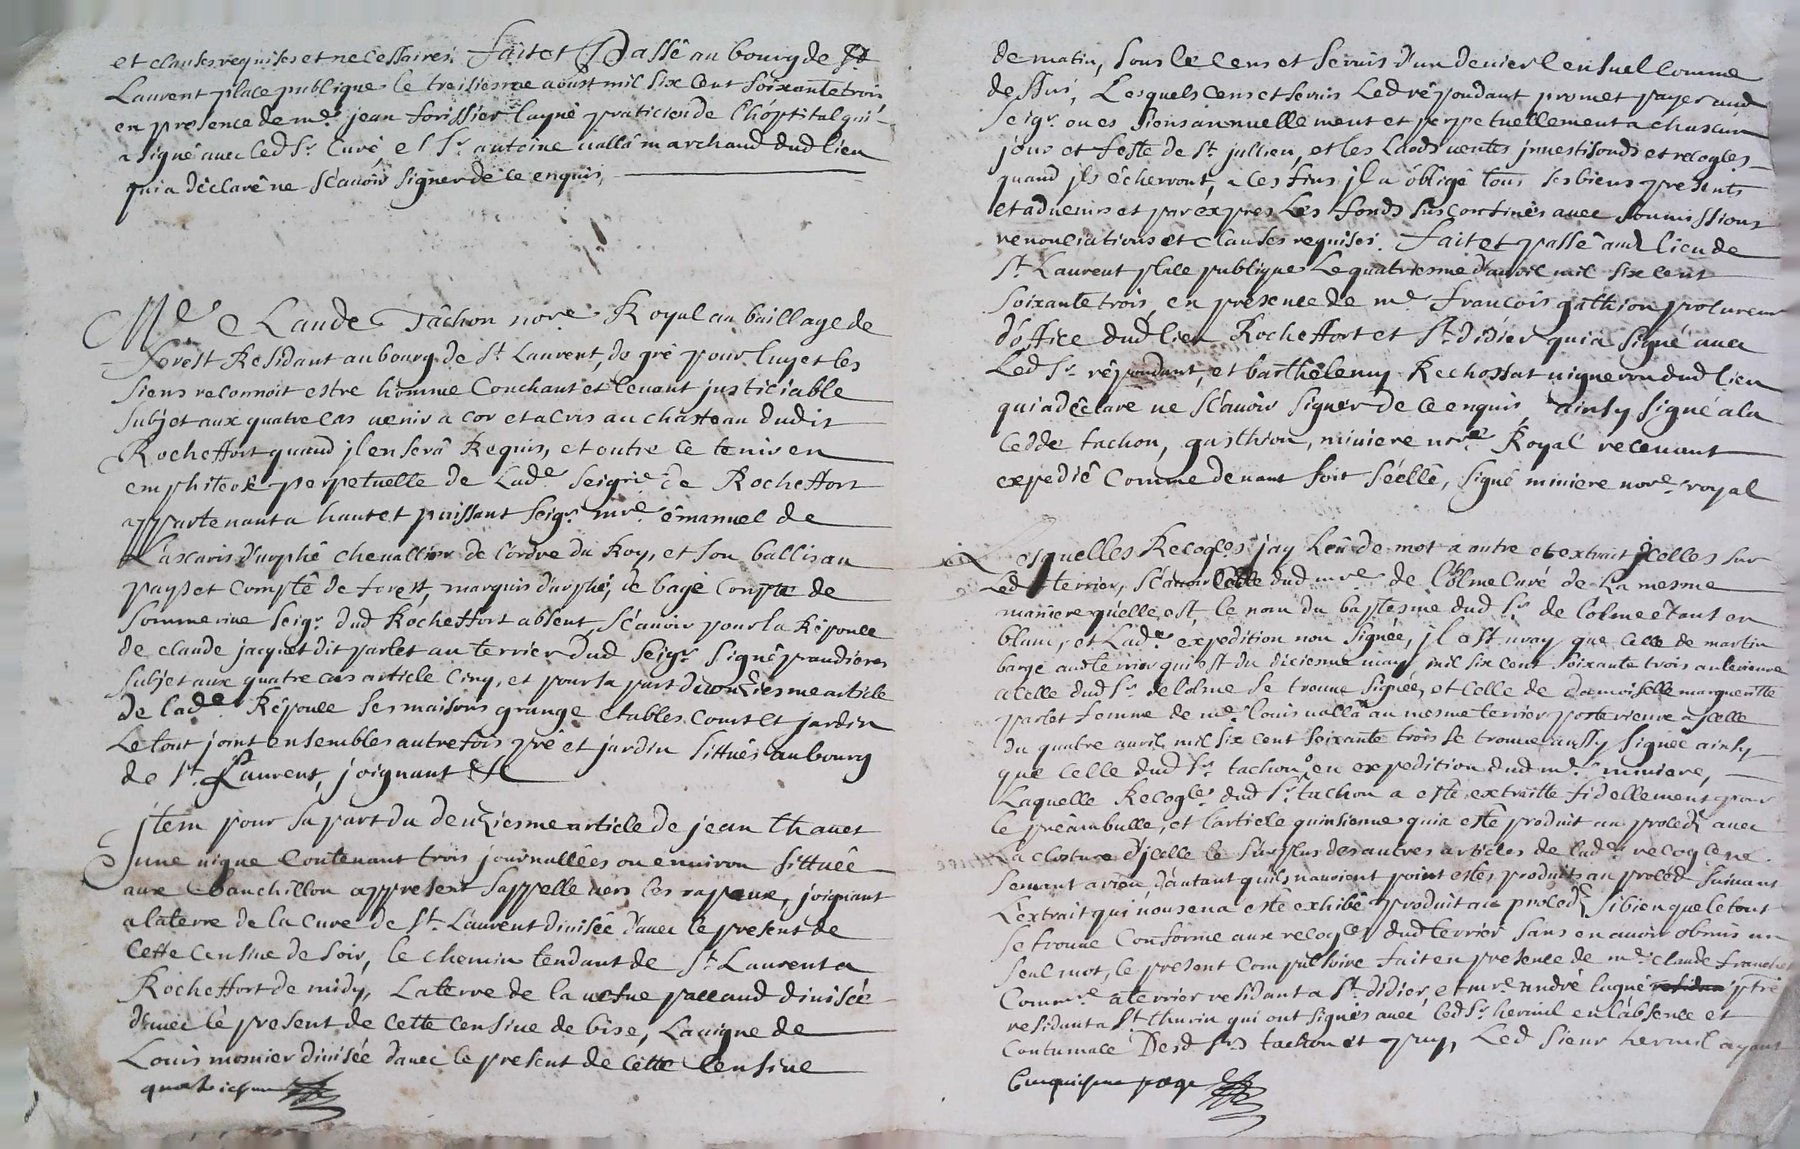 et clauses requises et necessaires. fait et Passé au bourg de St
Laurent place publique le treisiesme aoust mil six cent soixante trois
en presence de me. jean forissier layné praticien de l'hôpital qui
a signé avec led Sr. Curé et Sr. antoine vallâ marchand dud lieu
qui a déclaré ne scavoir signer de ce enquis,
Me Claude Tâchon nore. Royal au baillage de
forest Residant au bourg de St. Laurent, de gré pour luy et les
siens reconnoit estre homme Couchant et levant justiciable
subjet aux quatre cas venir a cor et a cris au chasteau dudit
Rocheffort quand il en serâ Requis, et outre ce tenir en
emphiteose perpetuelle de Lade seigrie de Rocheffort
appartenant a haut et puissant seigr. mre. émanuel de
Lascaris d'urphé chevallier de l'ordre du Roy, et son ballis au
pays et Compté de forest, marquis d'urphé, de bagé Compte de
Sommerive seigr. dud Rocheffort absent, Scavoir pour la Réponce
de claude jacquet dit parlet au terrier dud seigr. signé
subjet aux quatre cas article cinq, et pour sa part du onziesme article
de lade. Réponce ses maisons grange etables Court et jardin
Le tout joint ensembles autrefois pré et jardin sittués au bourg
de St. Laurent, joignant &
jtem pour sa part du deuziesme article de jean thavet
une vigne Contenant trois journallées ou environ sittuée
aux appresent s'appelle vers les rapeaux, joignant
a la terre de la Cure de St. Laurent divisée d'avec le present de
Cette Censive de Soir, le chemin tendant de St Laurent a
Rocheffort de midy, La terre de la divisée
d'avec le present de cette censive de bise, La vigne de
Louis monier divisée d'avec le present de cette Censive
quatriesme
de matin, sous le Cens et servis d'un denier Censuel Comme
dessus, Lesquels Cens et servis Led répondant promet payer aud
seigr. ou es siens annuellement et perpetuellement a chascun
jour et feste de St. jullien, et les Laods ventes jnvestisons et recogles
quand jls écherront, a ces fins jl a obligé tous ses biens presents
et advenirs et par expres Les fonds susconfinés avec soumissions
renonciations et Clauses requises. fait et passé aud lieu de
St. Laurent place publique Le quatriesme d'avril mil six cent
soixante trois, en présence de me. françois gathion procureur
d'office dud lieu Rocheffort et St. didier qui a signé avec
Led Sr. répondant, et barthélemy Rechossat vigneron dud lieu
qui a declaré ne scavoir signer de ce enquis, ainsy signé a la
Cedde tachon, gathion, miniere nore Royal recevant
expedié Comme devant soit séellé, signé miniere nore. royal
Lesquelles Recogles. jay leu de mot a autre et extrait jcelles sur
Led terrier, scavoir Celle dud mre de Colme Curé de La mesme
maniere quelle est, le nom du baptesme dud Sr. de Colme étant en
blanc, et Lade. expedition non signée, jl est vray que Celle de martin
bargé aud terrier qui est du dixieme may mil six cent soixante trois anterieure
a Celle dud Sr. de Colme se trouve signée, et Celle de damoiselle margueritte
parlet femme de me. louis vallâ au mesme terrier posterieure a jcelle
du quatre avril mil six cent soixante trois se trouve aussy signée ainsy
que Celle dud Sr. tachon en expedition dud me. miniere,
Laquelle Recogle. dud Sr. tachon a esté extraitte fidellement pour
le préambulle, et l'article quinsieme qui a esté produit au proced avec
la closture d'jcelle le surplus des autres articles de lade recogle ne
servant a rien d'autant quils n'avoient point estés produits au proced suivant
L'extrait qui nous en a esté exhibé produit au proced, si bien que le tout
se trouve Conforme aux recogles dud terrier sans en avoir obmis un
seul mot, le présent Compulsoire fait en presence de me. claude
Commre a terrier residant a St. didier, et mre. andré ptre
residant a St thurin qui ont signés avec led Sr. en l'absence et
Contumace Desd Srs tachon et Led Sieur ayant
Cinquiesme page